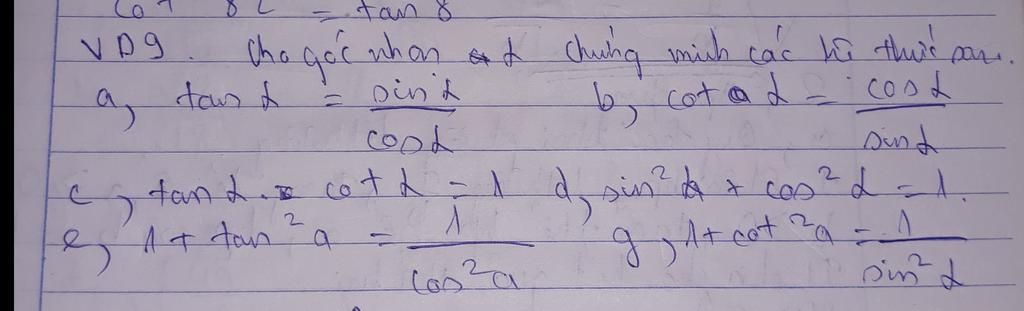 Cot 82 = tan 8
VD9. Cho góc nhọn α chứng minh các hệ thức sau.
a, tan α = sin α / cos α b, cot α = cos α / sin α
c, tan α . cot α = 1 d, sin² α + cos² α = 1.
e, 1 + tan² a = 1 / cos² a g, 1 + cot ² a = 1 / sin² α